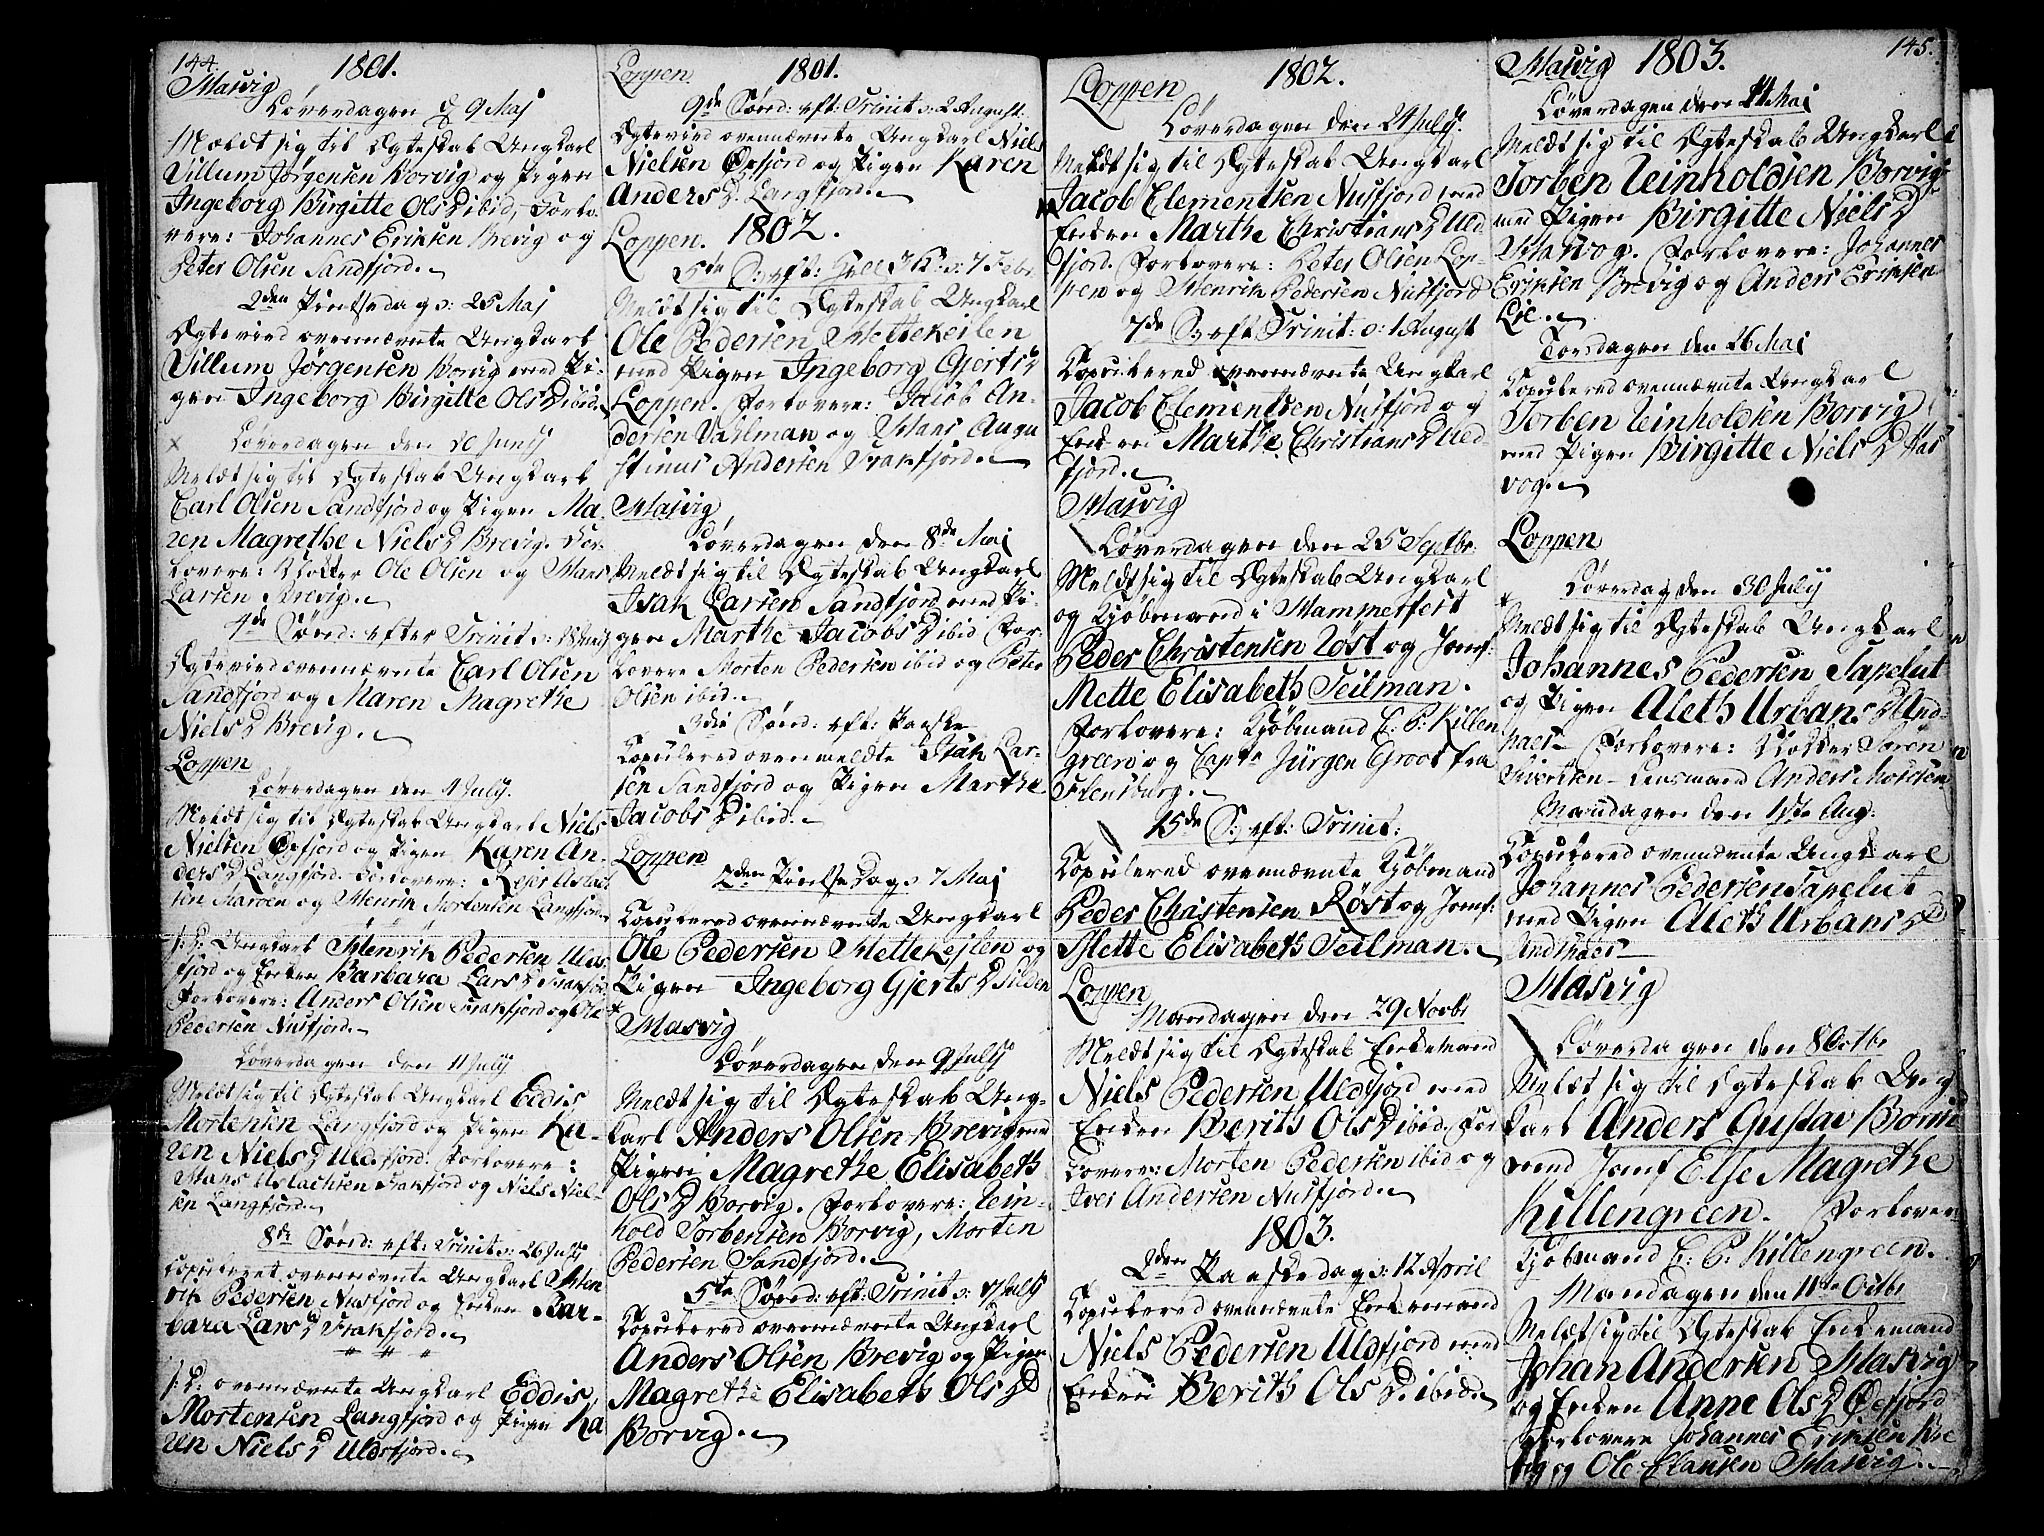 144.
1801.
Hasvig
Løverdagen d 9 Maj
Meldt sig til Ægteskab Ungkarl
Villum Jørgensen Borvig og Pigen
Ingeborg Birgitte Ols D ibid, Forlo-
vere: Johannes Eriksen Brevig og
Peter Olsen Sandfjord.
2den Pintsedag s: 25 Maj
Ægtevied ovennævnte Ungkarl
Villum Jørgensen Borvig med Pi-
gen Ingeborg Birgitte Ols D ibid.
Løverdagen den 20 Junij
Meldt sig til Ægteskab Ungkarl
Carl Olsen Sandfjord og Pigen Ma-
ren Magrethe Niels D Brevig. For-
lovere: Klokker Ole Olsen og Hans
Larsen Brevig.
4de Sønd: efter Trinit s: Junij
Ægteviedovennævnte Carl Olsen
Sandfjord og Maren Magrethe
Niels D Brevig.
Loppen
Løverdagen den 4 July.
Meldt sig til Ægteskab Ungkarl Niels
Nielsen Øxfjord og Pigen Karen An-
ders D Langfjord. Forlovere:
og Henrik Mortensen Langfjord
s: D: Ungkarl Henrik Pedersen Nus-
fjord og Enken Barbara Lars D Frakfjord
Forlovere: Anders Olsen Frakfjord og Ole
Pedersen Nusfjord.
Løverdagen den 11 July
Meldt sig til Ægteskab Ungkarl Eddis
Mortensen Langfjord og Pigen Ka-
ren Niels D Uldsfjord. Forlovere:
Hans Aslachsen Frakfjord og Niels Niel-
sen Langfjord.
8de Sønd: eft: Trinit s: 26 July
Copuleret ovennævnte Ungkarl Hen-
rik Pedersen Nusfjord og Enken Bar-
bara Lars D Frakfjord.
s: D: ovennævnte Ungkarl Eddis
Mortensen Langfjord og Pigen Ka
ren Niels D Uldsfjord.
Loppen.
1801.
9de Sønd: eft: Trinit s: 2 August.
Ægtevied ovennævnte Ungkarl Niels
Nielsen Øxfjord og Pigen Karen
Anders D. Langfjord.
Loppen. 1802.
5te S: eft: Hell 3 K: s: 7 Febr.
Meldt sig til Ægteskab Ungkarl
Ole Pedersen Mettekeilen
med Pigen Ingeborg Gjerts D
Loppen. Forlovere: Jacob An-
dersen Vasman og Hans Augu
stinus Andersen Frakfjord.
Hasvig
Løverdagen den 8de Maj
Meldt sig til Ægteskab Ungkarl
Isak Larsen Sandfjord med Pi-
gen Marthe Jacobs D ibid For-
lovere Morten Pedersen ibid og Peter
Olsen ibid.
3die Sønd: eft: Paaske
Copulered ovenmeldte Isak Lar-
sen Sandfjord og Pigen Marthe
Jacobs D ibid.
Loppen
2den Pintsedag s 7 Maj
Copulered ovennævnte Ungkarl
Ole Pedersen Mettekejlen og
Pigen Ingeborg Gjerts D Silden
Hasvig
Løverdagen den 9 July
Meldt sig til Ægteskab Ung-
karl Anders Olsen Brevig med
Pigen Magrethe Elisabeth
Ols D Borvig. Forlovere: Rein-
hold Torbensen Borvig, Morten
Pedersen Sandfjord.
5te Sønd: eft: Trinit s: July
Copulered ovennævnte Ungkarl
Anders Olsen Brevig og Pigen
Magrethe Elisabeth Ols D
Borvig.
Loppen
1802.
Løverdagen den 24 July.
Meldt sig til Ægteskab Ungkarl
Jacob Clementsen Nusfjord med
Enken Marthe Christians D Uld
sfjord. Forlovere: Peter Olsen Lop-
pen og Henrik Pedersen Nusfjord
7de S: eft Trinit: s: 1 August
Copulered ovennævnte Ungkarl
Jacob Clementsen Nusfjord og
Enken Marthe Christians D Uld-
sfjord.
Hasvig
Løverdagen den 25 Septbr.
Meldt sig til Ægteskab Ungkarl
og Kjøbmand i Hammerfest
Peder Christensen Røst og Jomf:
Mette Elisabeth Teilman.
Forlovere: Kjøbmand C. P: Killen
green og Captn Jürgen Groot fra
Flensburg.
15de S: eft: Trinit:
Copulered ovennævnte Kjøbmand
Peder Christensen Røst og Jomf:
Mette Elisabeth Teilman.
Loppen
Mandagen den 29 Novbr
Meldt sig til Ægteskab Enkemand
Niels Pedersen Uldsfjord med
Enken Berith Ols D ibid, For
lovere: Morten Pedersen ibid og
Iver Andersen Nusfjord.
1803.
2den Paaskedag s: 12 April
Copulered ovennævnte Enkemand
Niels Pedersen Uldsfjord med
Enken Berith Ols D. ibid.
Hasvig 1803.
145.
Løverdagen den 14 Maj
Meldt sig til Ægteskab Ungkarl
Torben Reinholdsen Borvig
med Pigen Birgitte Niels D
Hasvog. Forlovere: Johannes
Eriksen Brevig og Anders Eriksen
Lie.
Torsdagen den 26 Maj
Copulered ovennævnte Ungkarl
Torben Reinholdsen Borvig
med Pigen Birgitte Niels D Has
vog.
Loppen
Løverdag den 30 July
Meldt sig til Ægteskab Ungkarl
Johannes Pedersen Sapelut
og Pigen Aleth Urbans D And-
naes Forlovere: Klokker Søren
Sivertsen Lensmand Anders Mortsen
Mandagen den 1ste Aug:
Copulered ovennævnte Ungkarl
Johannes Pedersen Sapelut
med Pigen Aleth Urbans D
Andnaes
Hasvig
Løverdagen den 8 Octbr
Meldt sig til Ægteskab Ung
karl Anders Gustav Borin
med Jomf Else Magrethe
Killengreen. Forlover
Kjøbmand C: P. Killengreen.
Mandagen den Octbr
Meldt sig til Ægteskab Enkemand
Johan Andersen Hasvig
og Enken Anne Ols D Øxfjord
Forlovere Johannes Eriksen Bre
vig og Ole Clausen Hasvig.